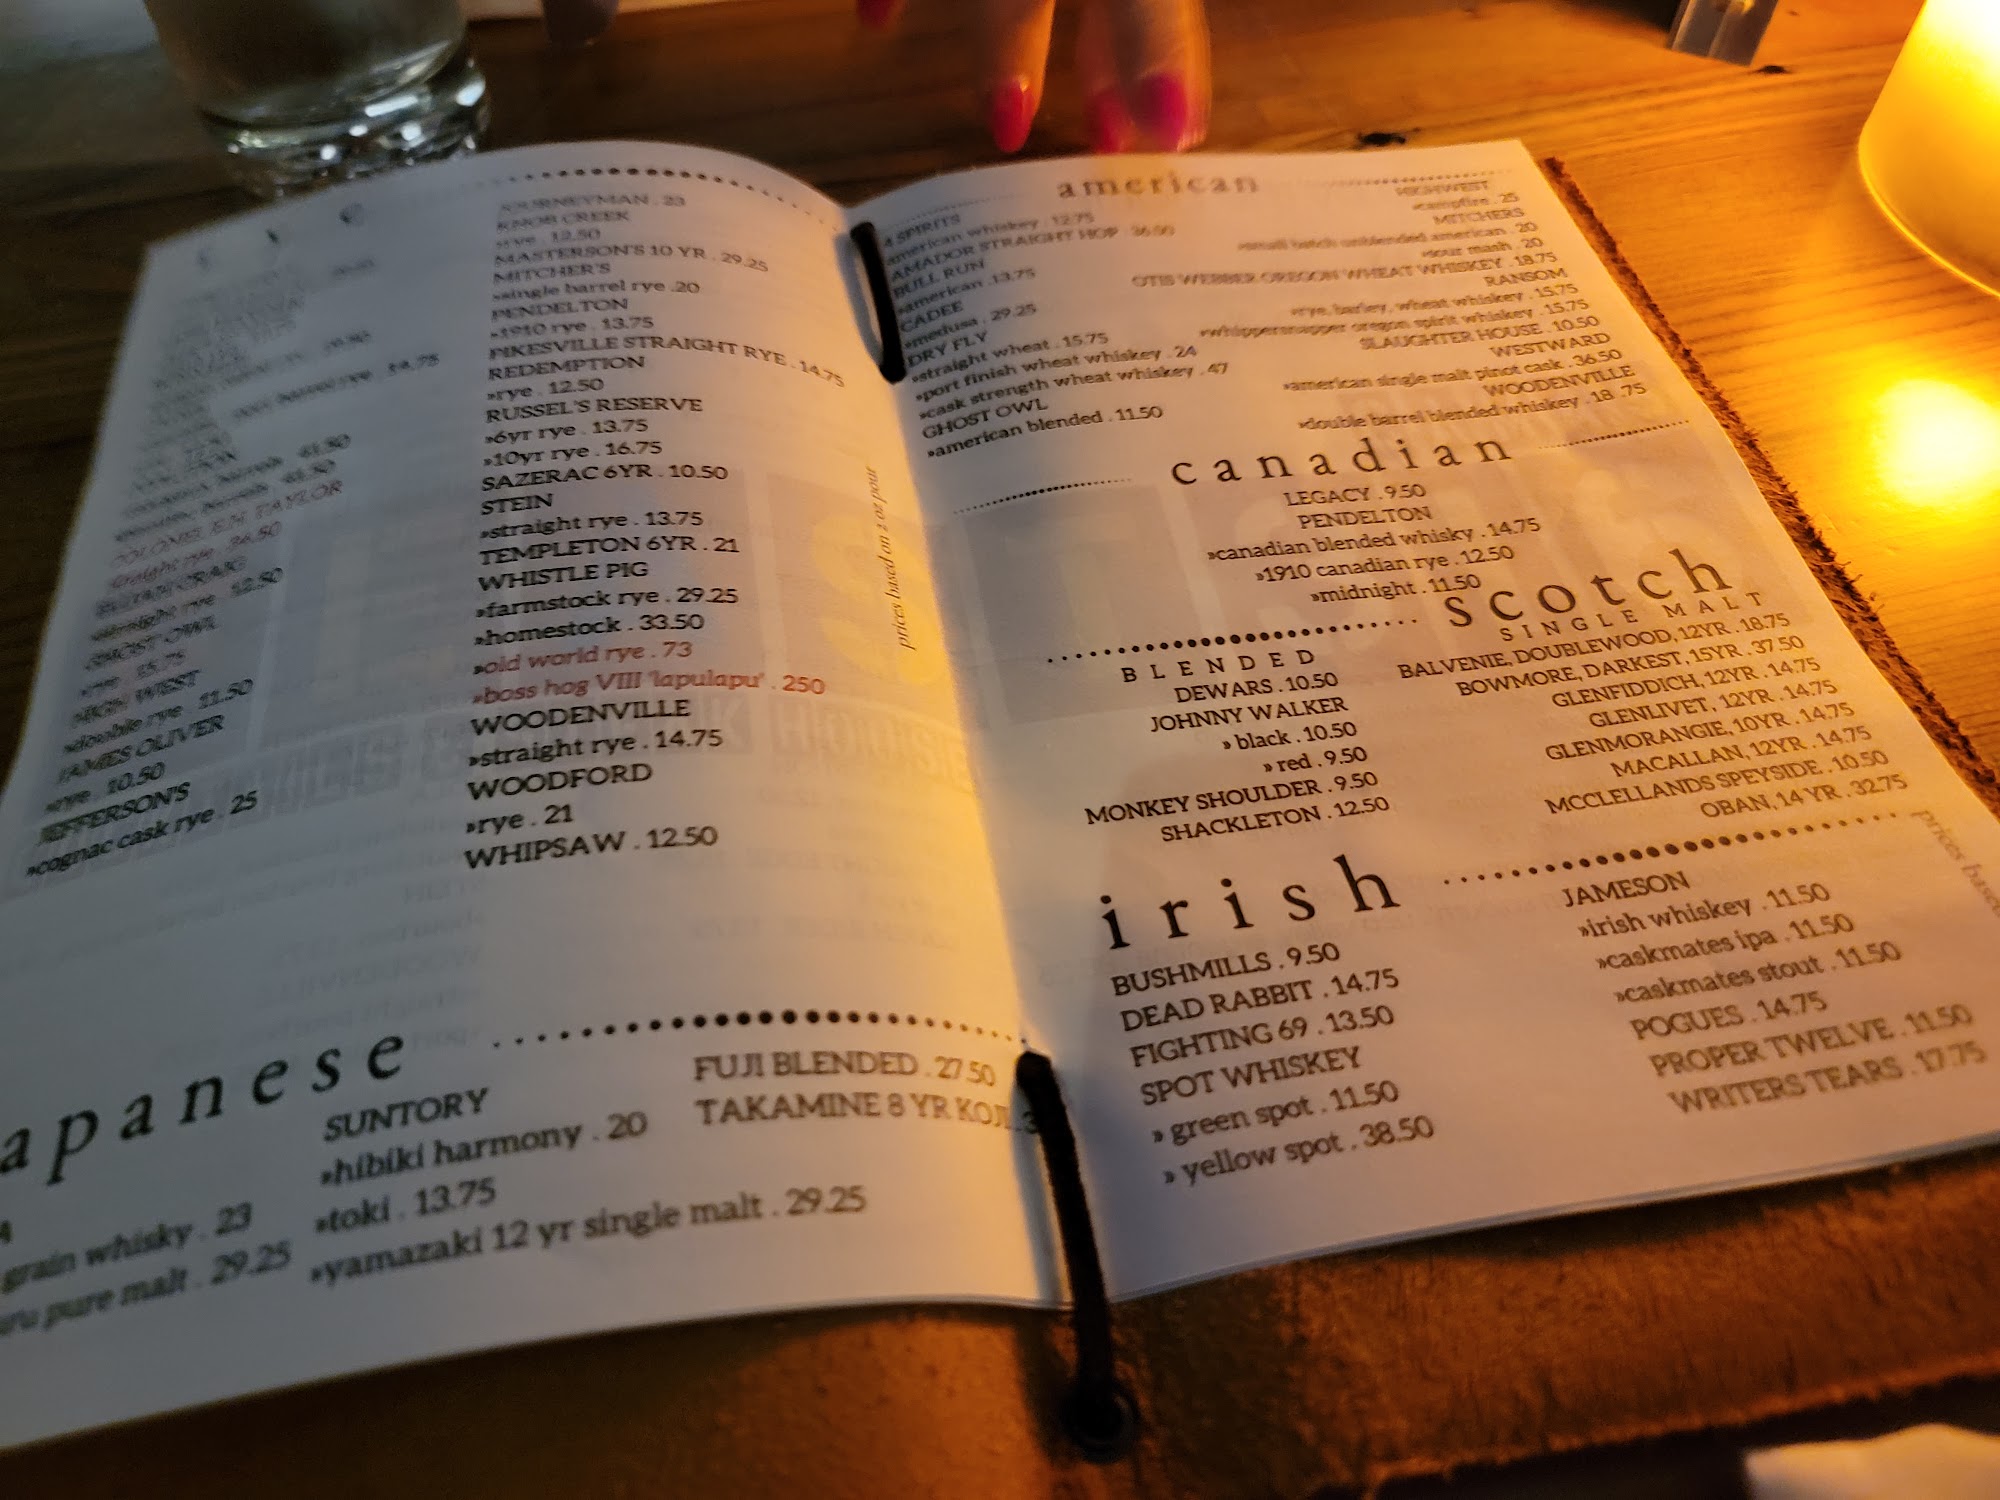 JOURNEYMAN . 23
KNOB CREEK
»rye . 12.50
MASTERSON'S 10 YR . 29.25
MITCHER'S
»single barrel rye .20
PENDELTON
»1910 rye . 13.75
PIKESVILLE STRAIGHT RYE . 14.75
REDEMPTION
»rye . 12.50
RUSSEL'S RESERVE
»6yr rye . 13.75
»10yr rye . 16.75
SAZERAC 6YR . 10.50
STEIN
»straight rye . 13.75
TEMPLETON 6YR . 21
WHISTLE PIG
»farmstock rye . 29.25
»homestock . 33.50
»old world rye . 73
»boss hog VIII 'lapulapu' . 250
WOODENVILLE
»straight rye . 14.75
WOODFORD
»rye . 21
WHIPSAW . 12.50
rye . 14.75
41.50
41.50
COLONEL E.H. TAYLOR
straight rye . 26.50
ELIJAH CRAIG
»straight rye 12.50
GHOST OWL
»rye . 15.75
HIGH WEST
»double rye 11.50
JAMES OLIVER
»rye . 10.50
JEFFERSON'S
»cognac cask rye . 25
prices based on 2 oz pour
apanese
grain whisky . 23
pure malt . 29.25
SUNTORY
»hibiki harmony . 20
»toki . 13.75
»yamazaki 12 yr single malt . 29.25
FUJI BLENDED . 27.50
TAKAMINE 8 YR KOJI . 3
american
SPIRITS
american whiskey . 12.75
AMADOR STRAIGHT HOP . 36.50
BULL RUN
»american . 13.75
CADEE
»medusa . 29.25
DRY FLY
»straight wheat . 15.75
»port finish wheat whiskey . 24
»cask strength wheat whiskey . 47
GHOST OWL
»american blended . 11.50
HIGHWEST
»campfire . 25
MITCHERS
»small batch unblended american . 20
»sour mash . 20
OTIS WEBBER OREGON WHEAT WHISKEY . 18.75
RANSOM
»rye, barley, wheat whiskey . 15.75
»whippersnapper oregon spirit whiskey . 15.75
SLAUGHTER HOUSE . 10.50
WESTWARD
»american single malt pinot cask . 36.50
WOODENVILLE
»double barrel blended whiskey . 18 .75
canadian
LEGACY . 9.50
PENDELTON
»canadian blended whisky . 14.75
»1910 canadian rye . 12.50
»midnight . 11.50
scotch
BLENDED
DEWARS . 10.50
JOHNNY WALKER
» black . 10.50
» red . 9.50
MONKEY SHOULDER . 9.50
SHACKLETON . 12.50
SINGLE MALT
BALVENIE, DOUBLEWOOD, 12YR . 18.75
BOWMORE, DARKEST, 15YR . 37.50
GLENFIDDICH, 12YR . 14.75
GLENLIVET, 12YR . 14.75
GLENMORANGIE, 10YR . 14.75
MACALLAN, 12YR . 14.75
MCCLELLANDS SPEYSIDE . 10.50
OBAN, 14 YR . 32.75
prices based
irish
BUSHMILLS . 9.50
DEAD RABBIT . 14.75
FIGHTING 69 . 13.50
SPOT WHISKEY
» green spot . 11.50
» yellow spot . 38.50
JAMESON
»irish whiskey . 11.50
»caskmates ipa . 11.50
»caskmates stout . 11.50
POGUES . 14.75
PROPER TWELVE . 11.50
WRITERS TEARS . 17.75